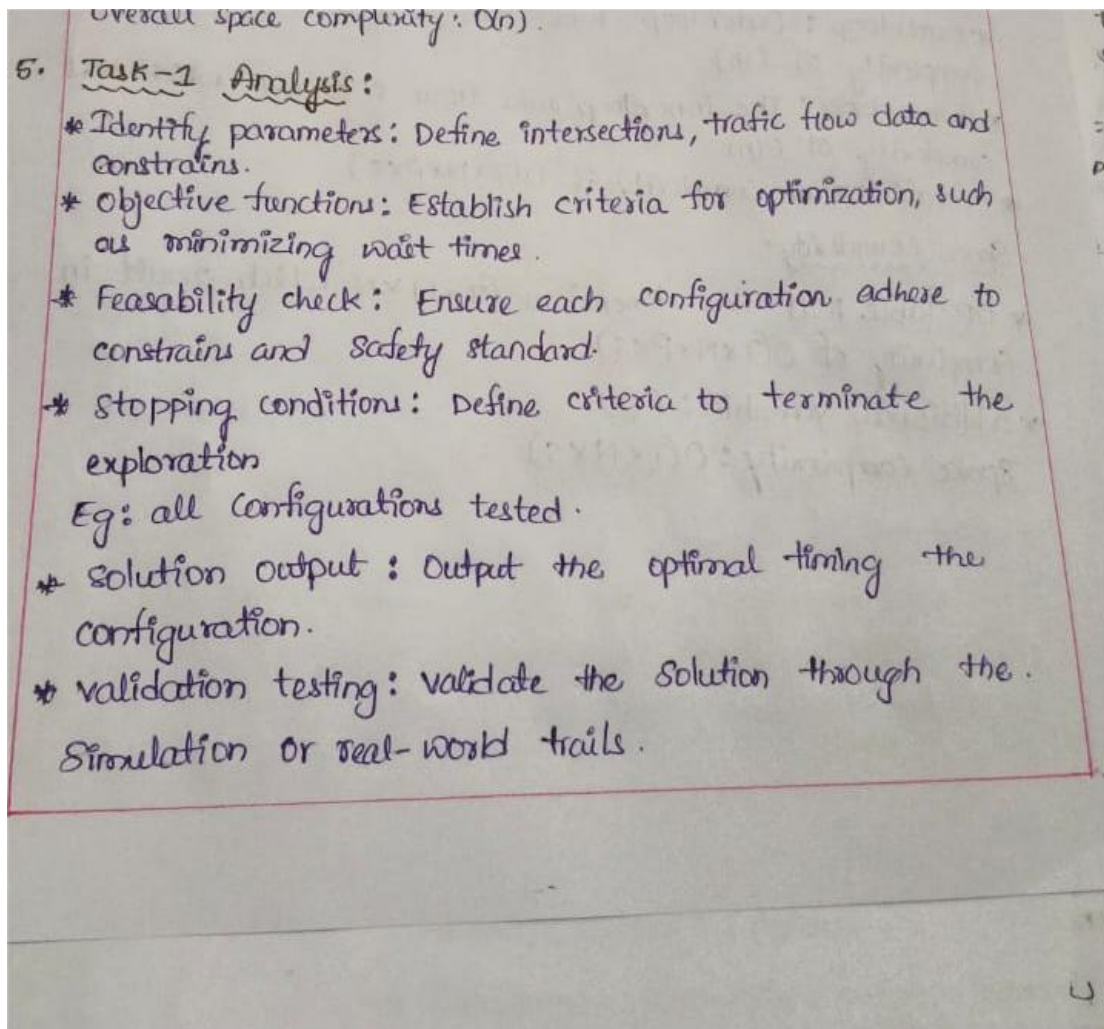 Overall space complexity: O(n).
5. Task-1 Analysis:
* Identify parameters: Define intersections, trafic flow data and
constrains.
* Objective functions: Establish criteria for optimization, such
as minimizing wait times.
* Feasability check: Ensure each configuration adhere to
constrains and safety standard.
* Stopping conditions: Define criteria to terminate the
exploration
Eg: all configurations tested.
* solution output: Output the optimal timing the
configuration.
* validation testing: validate the solution through the.
Simulation or real-world trails.